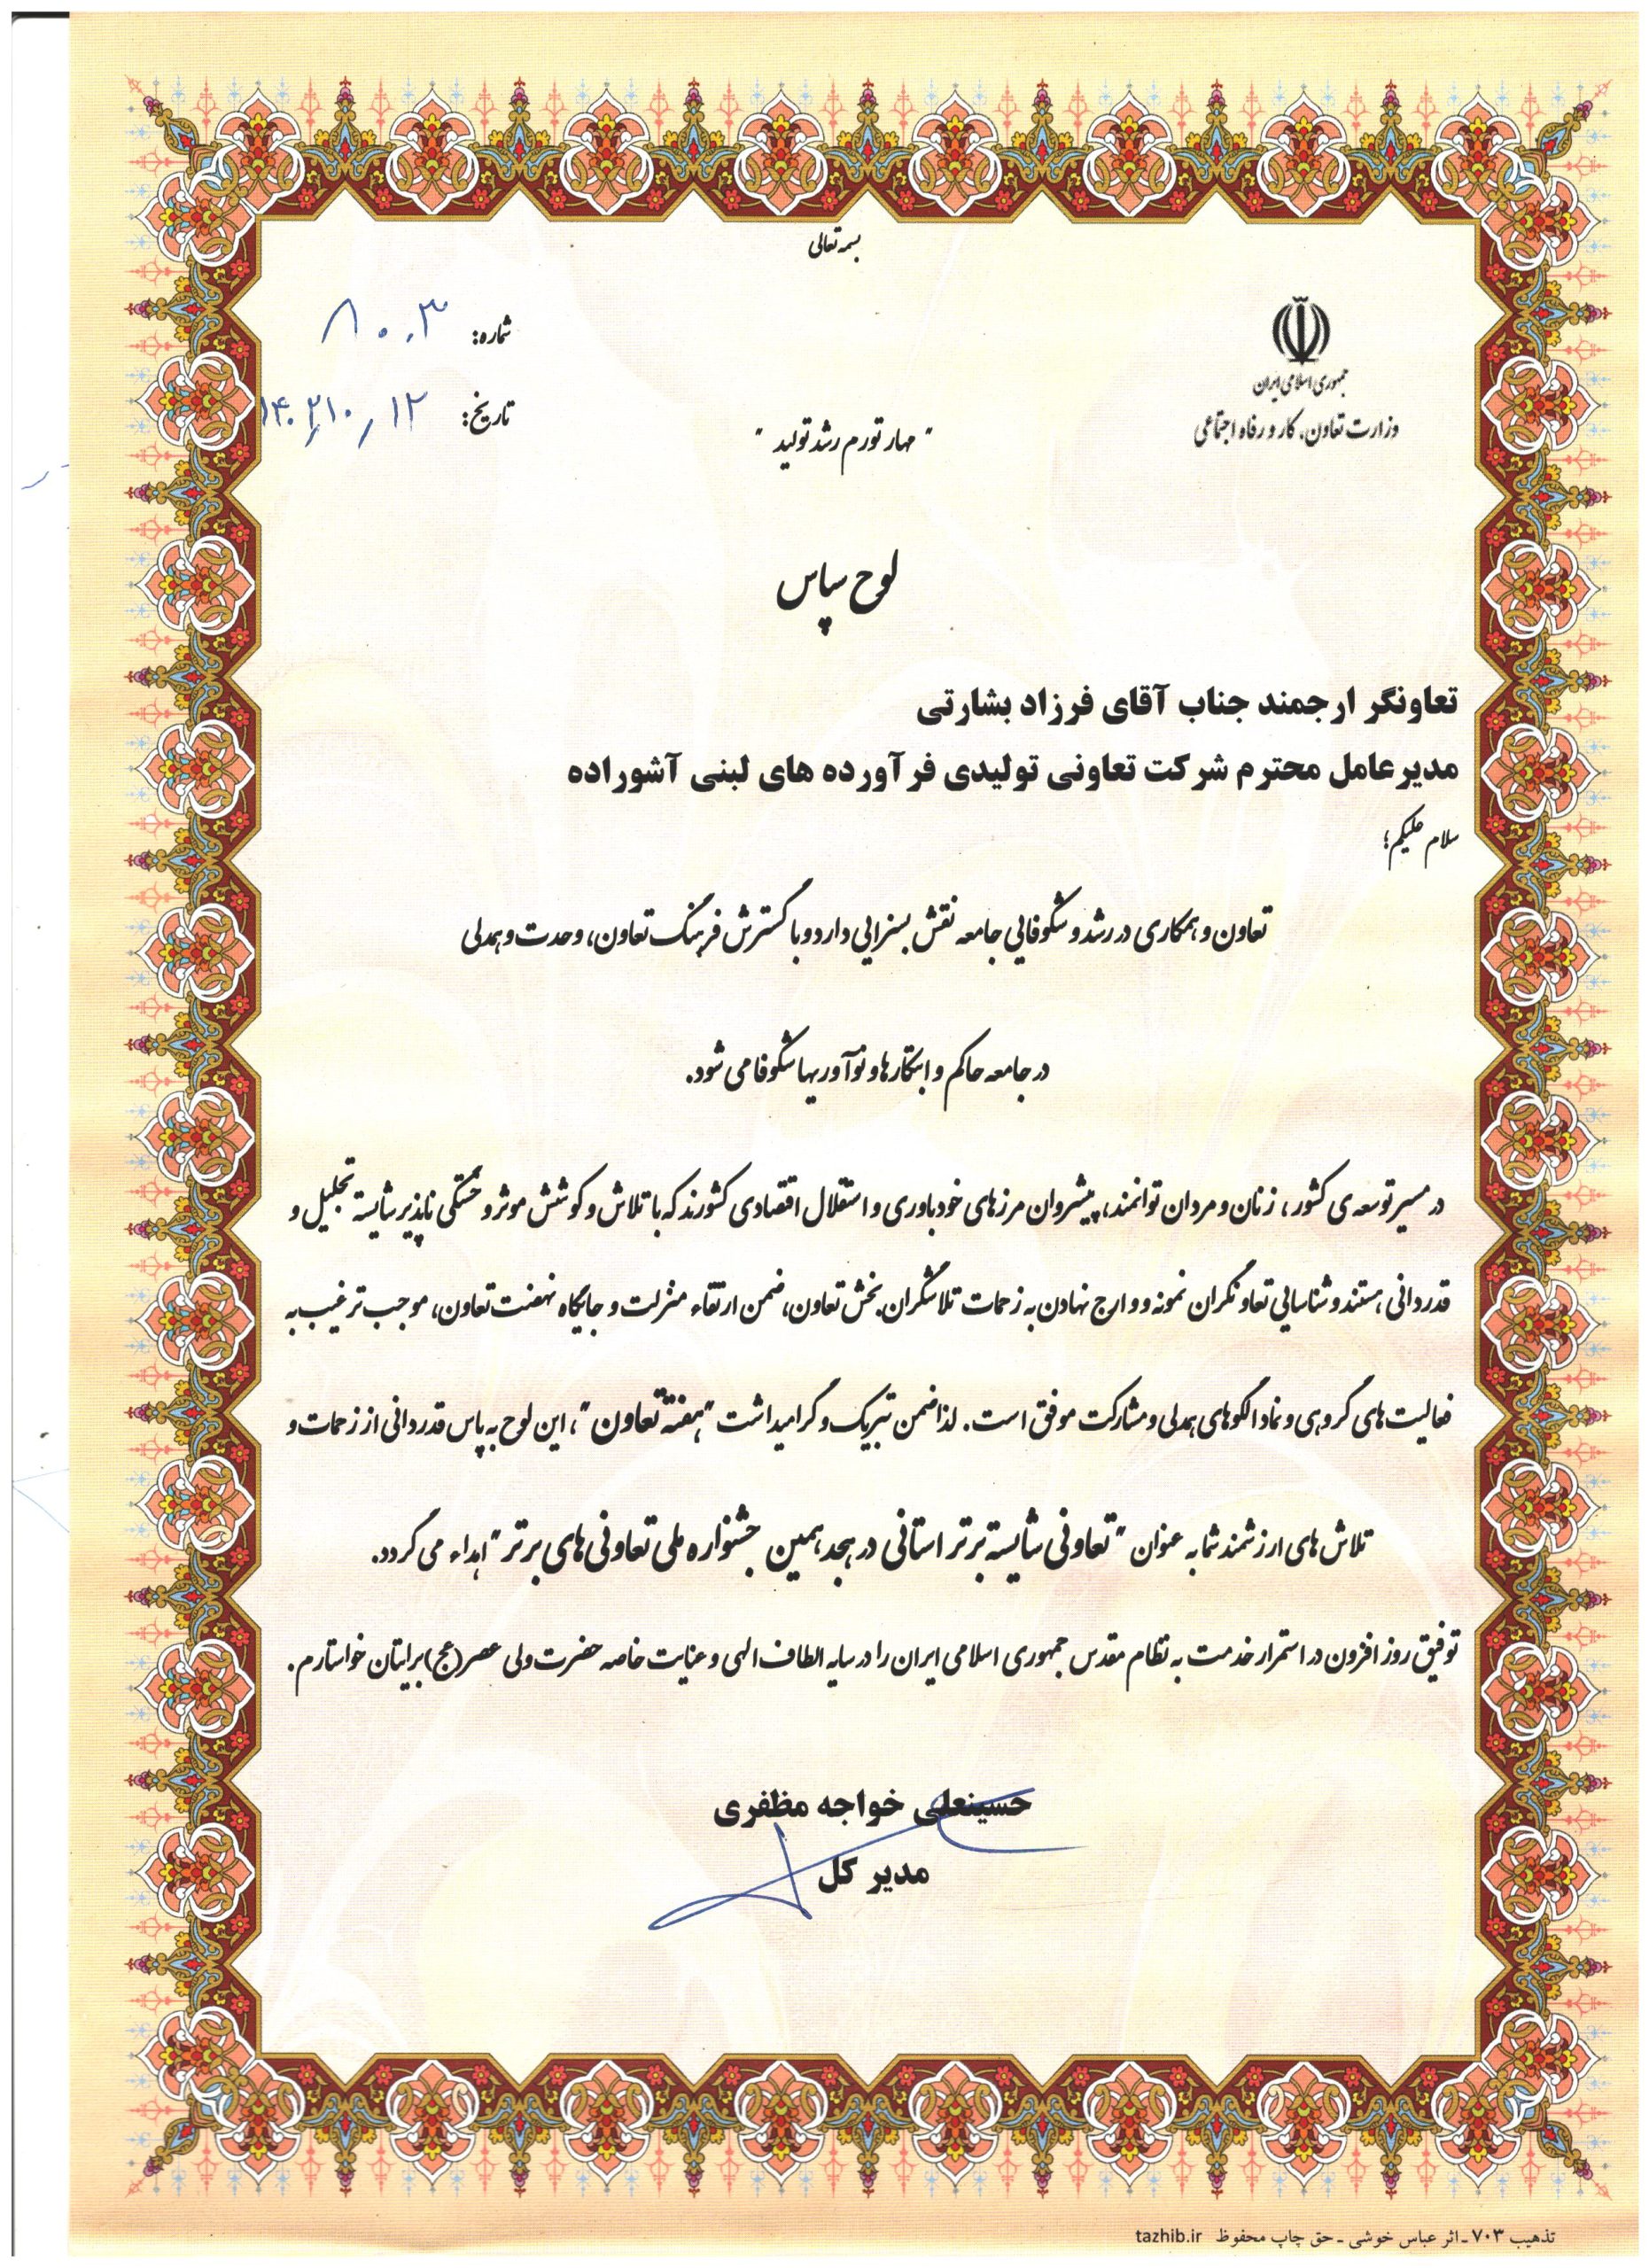 بسمه تعالی
جمهوری اسلامی ایران
وزارت تعاون، کار و رفاه اجتماعی
شماره: ۸۰۰۳
تاریخ: ۱۴۰۲/۱۰/۱۲
" مهار تورم رشد تولید "
لوح سپاس
تعاونگر ارجمند جناب آقای فرزاد بشارتی
مدیرعامل محترم شرکت تعاونی تولیدی فرآورده های لبنی آشوراده
سلام علیکم؛
تعاون و همکاری در رشد و شکوفایی جامعه نقش بسزایی دارد و با گسترش فرهنگ تعاون، وحدت و همدلی
در جامعه حاکم و ابتکارها و نوآوریها شکوفا می شود.
در مسیر توسعه ی کشور، زنان و مردان توانمند، پیشروان مرزهای خودباوری و استقلال اقتصادی کشورند که با تلاش و کوشش موثر و خستگی ناپذیر شایسته تجلیل و
قدردانی هستند و شناسایی تعاونگران نمونه و و ارج نهادن به زحمات تلاشگران بخش تعاون، ضمن ارتقاء منزلت و جایگاه نهضت تعاون، موجب ترغیب به
فعالیت های گروهی و نماد الگوهای همدلی و مشارکت موفق است. لذا ضمن تبریک و گرامیداشت "هفته تعاون"، این لوح به پاس قدردانی از زحمات و
تلاش های ارزشمند شما به عنوان "تعاونی شایسته برتر استانی در هجدهمین جشنواره ملی تعاونی های برتر" اهداء می گردد.
توفیق روز افزون در استمرار خدمت به نظام مقدس جمهوری اسلامی ایران را در سایه الطاف الهی و عنایت خاصه حضرت ولی عصر (عج) برایتان خواستارم.
حسینعلی خواجه مظفری
مدیر کل
تذهیب ۷۰۳ ـ اثر عباس خوشی ـ حق چاپ محفوظ tazhib.ir